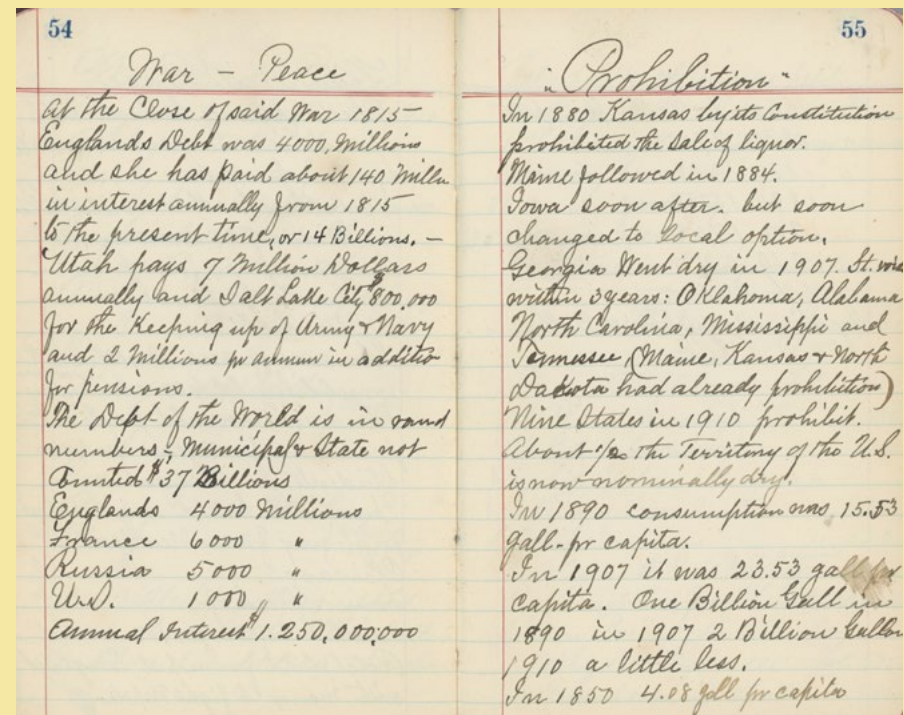 54
War – Peace
At the Close of said War 1815
Englands Debt was 4000, Millions
and she has paid about 140 Milln
in interest annually from 1815
to the present time, or 14 Billions. –
Utah pays 7 Million Dollars
annually and Salt Lake City $800,000
for the Keeping up of Army & Navy
and 2 Millions pr annum in additio
for pensions.
The Debt of the World is in round
numbers, Municipal & State not
Counted $37 Billions
Englands 4000 Millions
France 6000 "
Russia 5000 "
U.S. 1000 "
Annual Interest $1.250,000,000
55
"Prohibition"
In 1880 Kansas by its Constitution
prohibited the Sale of liquor.
Maine followed in 1884.
Iowa soon after. but soon
changed to local option.
Georgia Went dry in 1907. St.
within 3 years: Oklahoma, Alabama
North Carolina, Mississippi and
Tennessee (Maine, Kansas & North
Dakota had already prohibition)
Nine States in 1910 prohibit.
About 1/2 the Territory of the U.S.
is now nominally dry.
In 1890 consumption was 15.53
gall- pr capita.
In 1907 it was 23.53 gall pr
capita. One Billion Gall in
1890 in 1907 2 Billion Gallon
1910 a little less.
In 1850 4.08 gall pr capita